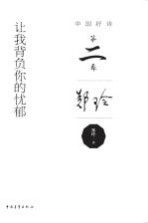 中国好诗
第二卷
郑玲
让我背负你的忧郁
中国青年出版社